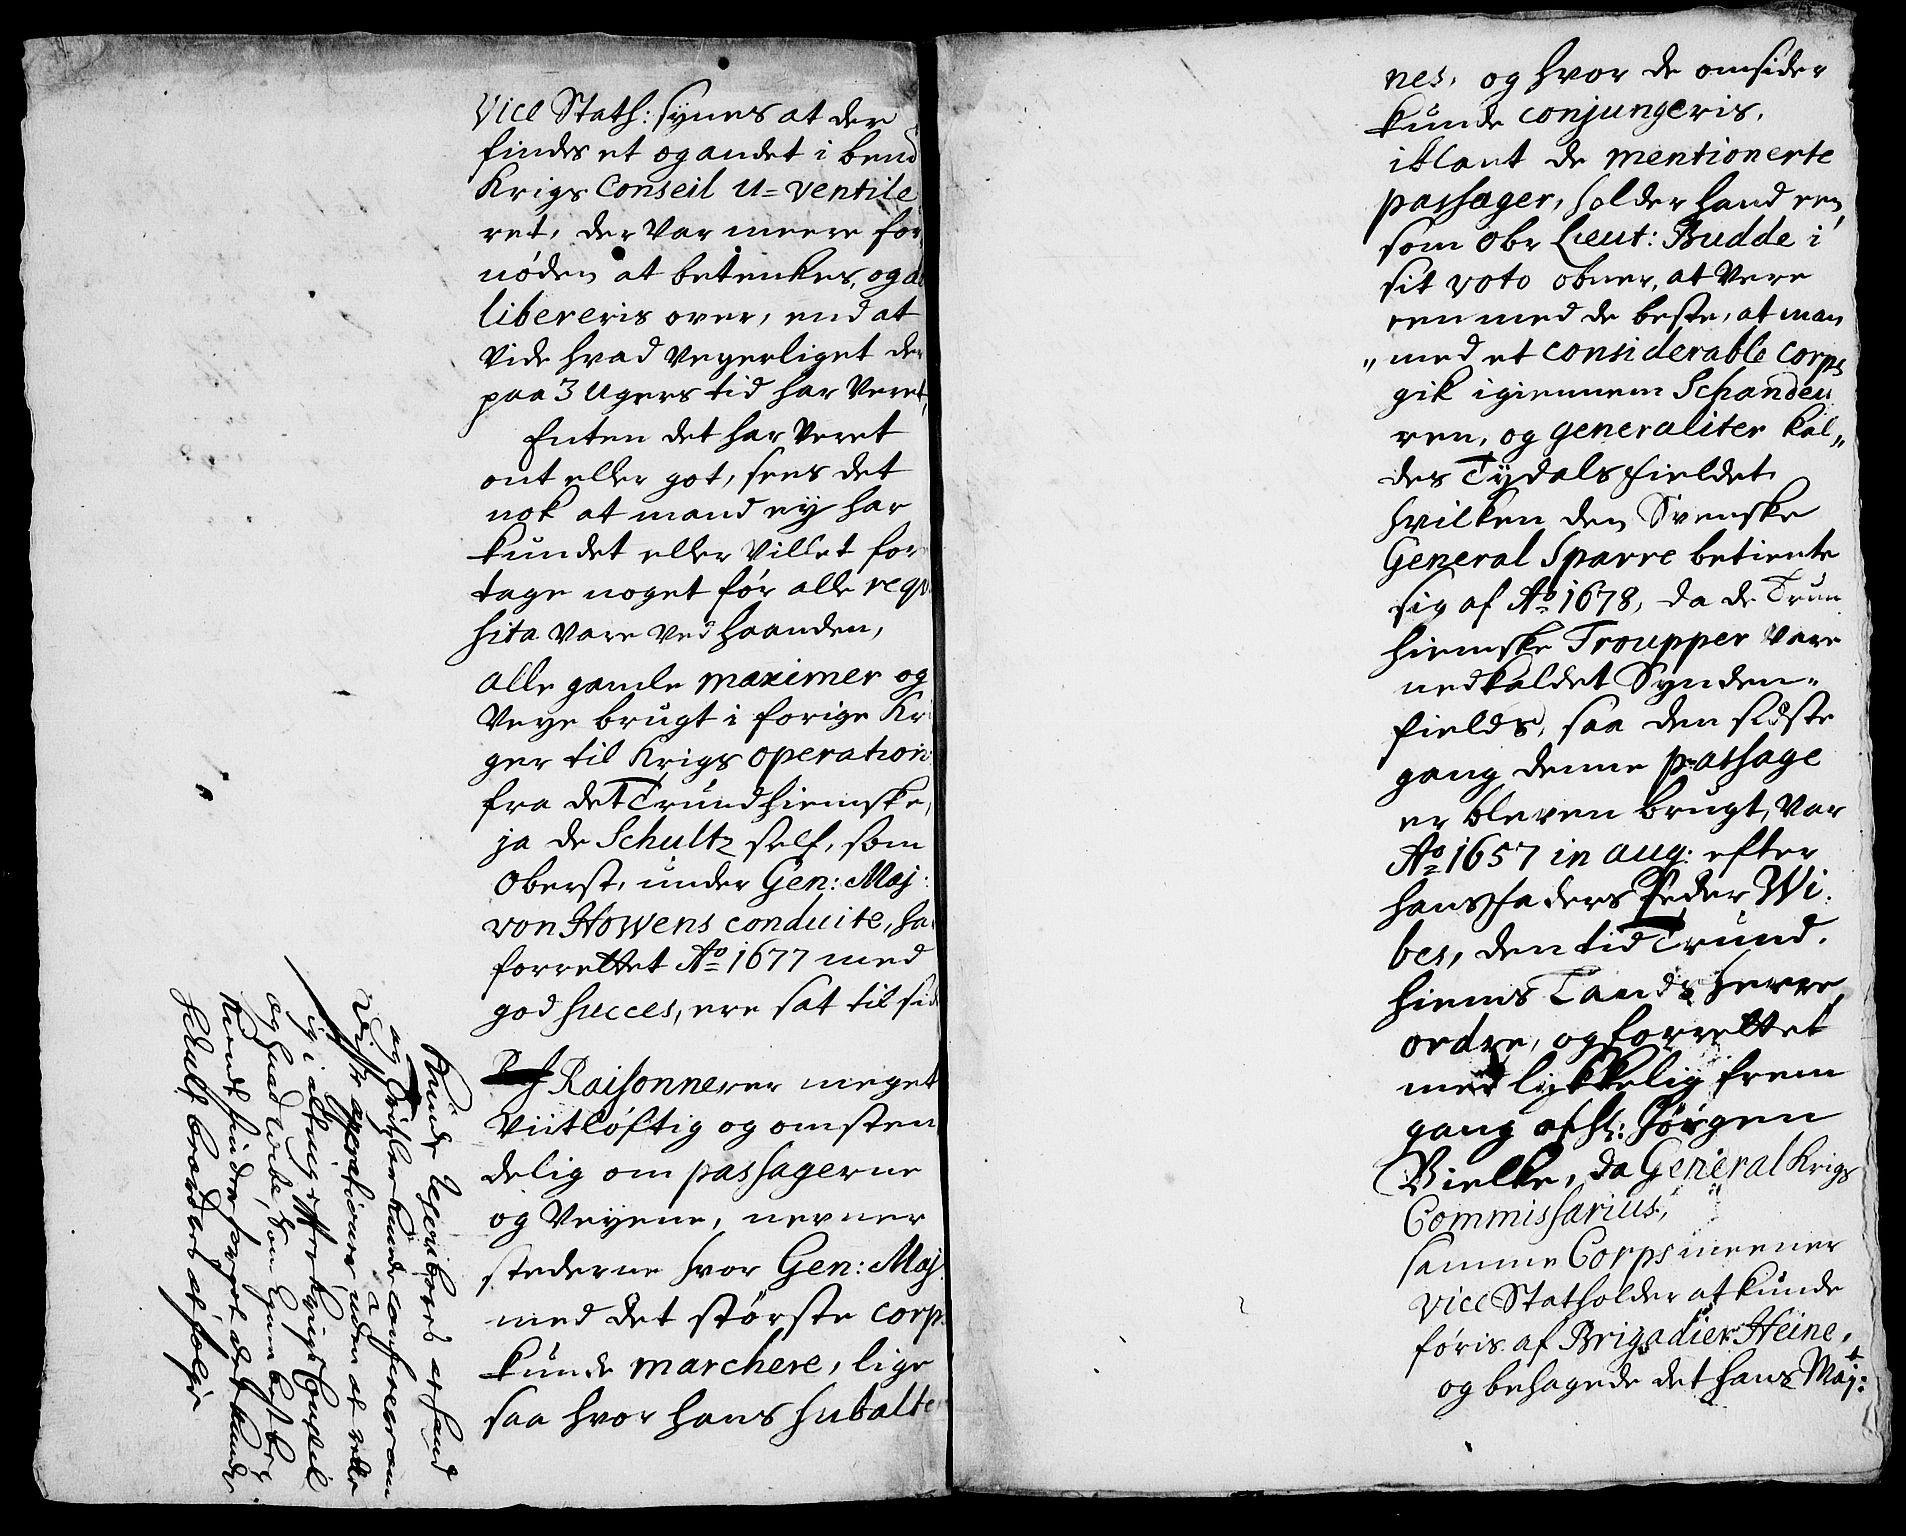 Vice Stath: synes at der
findes et og andet i bend
Krigs Conseil u=ventile
ret, der var meere for
nöden at betenkes, og de
libereris over, end at
vide hvad veyerliget der
paa 3 ugers tid har veret,
Enten det har veret
ont eller got, sees det
nok at mand ey har
kundet eller villet for
tage noget för alle reqvi
sita vare ved haanden,
Alle gamle maximer og
Veye brugt i forige Kri
ger til Krigs operation
fra det Trundhiemske,
ja de Schultz self, som
Oberst, under Gen: Maj:
von Howens conduite, ha
forrettet Ao 1677 med
god succes, ere sat til sid
Raisonnerer meget
viitlöftig og omsten
delig om passagerne
og Veyene, nevner
stederne hvor Gen: Maj:
med det störste corps
kunde marchere, lige
saa hvor hans subalter
kunde at hand
og kunde conferere om
operationer, uden at
ig i alting efter Krigs Conseil
og hvad Wibe,
at kunde
Schultz at folge
nes, og hvor de omsider
kunde conjungeris.
iblant de mentionerte
passager, holder hand een,
som Obr Lieut: Budde i
sit voto obner, at vere
een med de beste, at man
med et considerable corps
gik igiennem Schanden
ren, og generaliter kal„
des Tydalsfieldet
hvilken den Svenske
General Sparre betiente
sig af Ao 1678, da de Trun
hiemske Troupper vare
nedkaldet Synden=
fields, saa den sidste
gang denne passage
er bleven brugt, var
Ao 1657 in aug: efter
hans faders Peder Wi:
bes, den tid Trund.
hiems Landsherre,
ordre, og forrettet
med lykkelig frem
gang af Sl: Jörgen
Bielke, da General Krigs
Commissarius,
samme Corps meener
Vice Statholder at kunde
föris af Brigadier Heine,
og behagede det hans Majt: